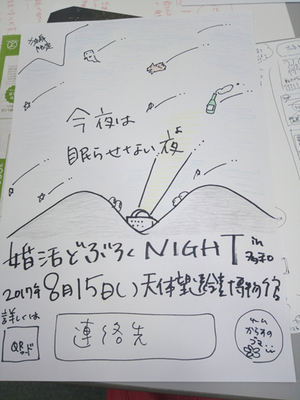 今夜は
眠らせない夜よ
婚活どぶろくNIGHT in
2017年8月15日( )天体望遠鏡博物館
詳しくは
QRコード
連絡先